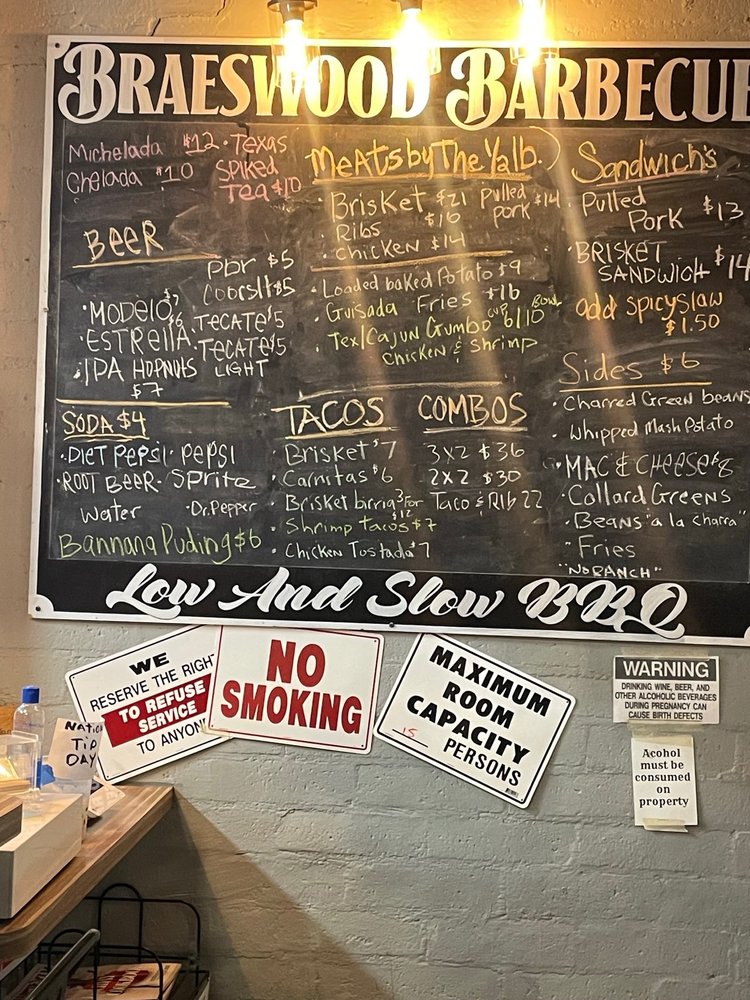 BRAESWOOD BARBECUE
Michelada $12 · Texas
Chelada $10 Spiked
Tea $10
BEER
pbr $5
Coorslt $5
· MODELO $7
· ESTRELLA $6 · TECATE $5
· IPA HOPNUTS · TECATE $5
$7 LIGHT
SODA $4
· DIET PEPSI · PEPSI
· ROOT BEER · Sprite
Water · Dr. Pepper
Bannana Puding $6
Meats by The Yalb.
· Brisket $21 Pulled
pork $14
· Ribs $16
· Chicken $14
· Loaded baked Potato $9
· Guisada Fries $16
· Tex/Cajun Gumbo CUP 6/10 BOWL
Chicken & Shrimp
TACOS
· Brisket $7
· Carnitas $6
· Brisket birria 3 For
$12
· Shrimp tacos $7
· Chicken Tostada $7
COMBOS
3x2 $36
2x2 $30
Taco & Rib 22
Sandwich's
· Pulled
Pork $13
· BRISKET
SANDWICH $14
add spicy slaw
$1.50
Sides $6
· Charred Green beans
· Whipped Mash Potato
· MAC & CHEESE $8
· Collard Greens
· Beans "a la charra"
· Fries
"NO RANCH"
Low And Slow BBQ
WE
RESERVE THE RIGHT
TO REFUSE
SERVICE
TO ANYON
NO
SMOKING
MAXIMUM
ROOM
CAPACITY
15 PERSONS
WARNING
DRINKING WINE, BEER, AND
OTHER ALCOHOLIC BEVERAGES
DURING PREGNANCY CAN
CAUSE BIRTH DEFECTS
Acohol
must be
consumed
on
property
Tip
DAY